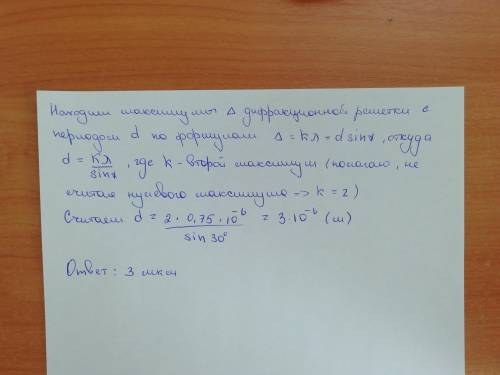 Находим максимумы Δ дифракционной решетки с
периодом d по формулам Δ = kλ = d sinγ, откуда
d = kλ/sinγ, где k - второй максимум (полагаю, не
считая нулевого максимума => k = 2)
Считаем d = 2 · 0,75 · 10⁻⁶ / sin 30° = 3·10⁻⁶ (м)
Ответ: 3 мкм